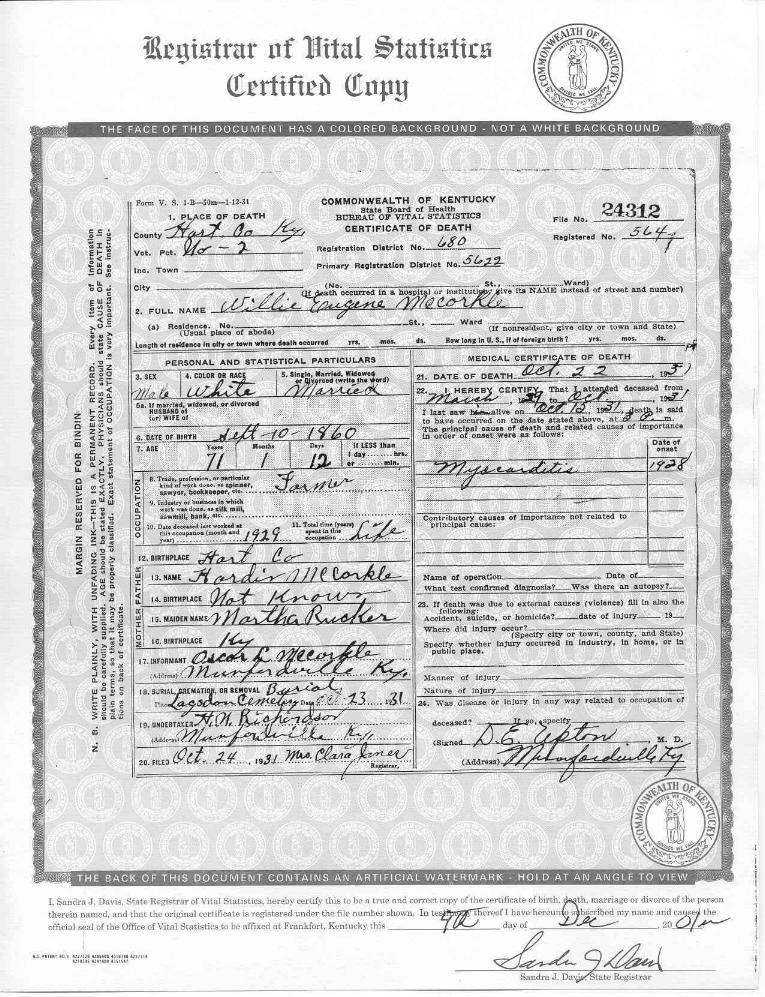 Registrar of Vital Statistics
Certified Copy
COMMONWEALTH OF KENTUCKY
UNITED WE STAND
DIVIDED WE FALL
THE FACE OF THIS DOCUMENT HAS A COLORED BACKGROUND - NOT A WHITE BACKGROUND
MARGIN RESERVED FOR BINDIN
N. B. WRITE PLAINLY, WITH UNFADING INK—THIS IS A PERMANENT RECORD. Every item of information
should be carefully supplied. AGE should be stated EXACTLY. PHYSICIANS should state CAUSE OF DEATH in
plain terms, so that it may be properly classified. Exact statement of OCCUPATION is very important. See instruc-
tions on back of certificate.
Form V. S. 1-B—50m—1-12-31
COMMONWEALTH OF KENTUCKY
State Board of Health
BUREAU OF VITAL STATISTICS
CERTIFICATE OF DEATH
File No. 24312
Registered No. 564
1. PLACE OF DEATH
County Hart Co Ky.
Vot. Pct. No-2
Inc. Town
City
Registration District No. 680
Primary Registration District No. 5622
(No. St., Ward)
(If death occurred in a hospital or institution, give its NAME instead of street and number)
2. FULL NAME Willie Eugene Mccorkle
(a) Residence. No. St., Ward
(Usual place of abode) (If nonresident, give city or town and State)
Length of residence in city or town where death occurred yrs. mos. ds. How long in U. S., if of foreign birth? yrs. mos. ds.
PERSONAL AND STATISTICAL PARTICULARS
3. SEX 4. COLOR OR RACE 5. Single, Married, Widowed
or Divorced (write the word)
Male White Married
5a. If married, widowed, or divorced
HUSBAND of
(or) WIFE of
6. DATE OF BIRTH Sept-10-1860
7. AGE Years Months Days If LESS than
1 day hrs.
or min.
71 1 12
OCCUPATION
8. Trade, profession, or particular
kind of work done, as spinner,
sawyer, bookkeeper, etc. Farmer
9. Industry or business in which
work was done, as silk mill,
sawmill, bank, etc.
10. Date deceased last worked at
this occupation (month and
year) 1929
11. Total time (years)
spent in this
occupation Life
12. BIRTHPLACE Hart Co
FATHER
13. NAME Hardin McCorkle
14. BIRTHPLACE Not Known
MOTHER
15. MAIDEN NAME Martha Rucker
16. BIRTHPLACE Ky
17. INFORMANT Oscar L Mccorkle
(Address) Munfordville Ky.
18. BURIAL, CREMATION, OR REMOVAL Burial
Place Lagsdon Cemetery Date Oct-23 1931
19. UNDERTAKER H.W. Richardson
(Address) Munfordville Ky.
20. FILED Oct. 24, 1931 Mrs Clara Janes
Registrar.
MEDICAL CERTIFICATE OF DEATH
21. DATE OF DEATH Oct. 22 1931
22. I HEREBY CERTIFY, That I attended deceased from
March, to Oct 1931
I last saw him alive on Oct 15, 1931, death is said
to have occurred on the date stated above, at m
The principal cause of death and related causes of importance
in order of onset were as follows:
Date of
onset
Myocarditis 1928
Contributory causes of importance not related to
principal cause:
Name of operation Date of
What test confirmed diagnosis? Was there an autopsy?
23. If death was due to external causes (violence) fill in also the
following:
Accident, suicide, or homicide? date of injury 19
Where did injury occur?
(Specify city or town, county, and State)
Specify whether injury occurred in industry, in home, or in
public place.
Manner of injury
Nature of injury
24. Was disease or injury in any way related to occupation of
deceased? If so, specify
(Signed D.E. Upton M. D.
(Address) Munfordville Ky
COMMONWEALTH OF KENTUCKY
THE BACK OF THIS DOCUMENT CONTAINS AN ARTIFICIAL WATERMARK - HOLD AT AN ANGLE TO VIEW
I, Sandra J. Davis, State Registrar of Vital Statistics, hereby certify this to be a true and correct copy of the certificate of birth, death, marriage or divorce of the person
therein named, and that the original certificate is registered under the file number shown. In testimony thereof I have hereunto subscribed my name and caused the
official seal of the Office of Vital Statistics to be affixed at Frankfort, Kentucky this 9th day of Dec, 20
Sandra J Davis
Sandra J. Davis, State Registrar